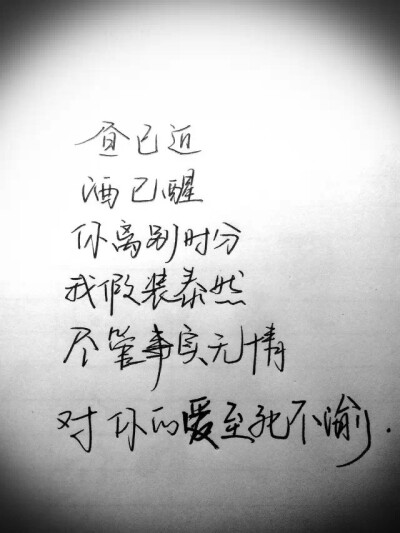 昼已近
酒已醒
你离别时分
我假装泰然
尽管事实无情
对你的爱至死不渝.